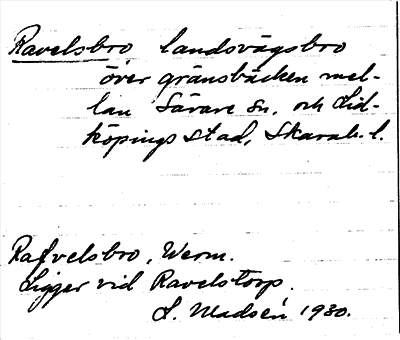 Ravelsbro landsvägsbro
över gränsbäcken mel-
lan Särare sn. och Lid-
köpings stad, Skarab. l.
Rafvelsbro, Werm.
Ligger vid Ravelstorp.
L. Madsén 1930.